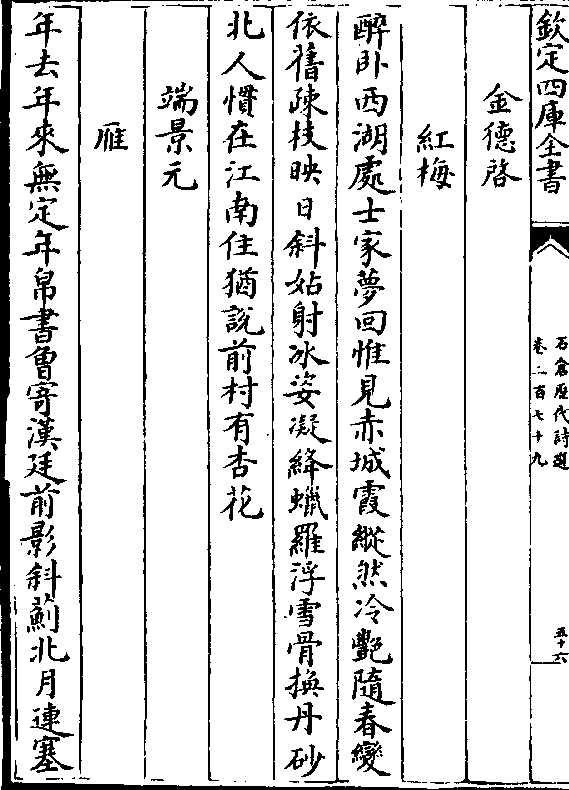 欽定四庫全書
石倉歷代詩選
卷二百七十九
五十六
金德啓
紅梅
醉卧西湖處士家夢回惟見赤城霞縱然冷艷隨春變
依舊疎枝映日斜姑射冰姿凝絳蠟羅浮雪骨換丹砂
北人慣在江南住猶説前村有杏花
端景元
雁
年去年來無定年帛書曽寄漢廷前影斜薊北月連塞